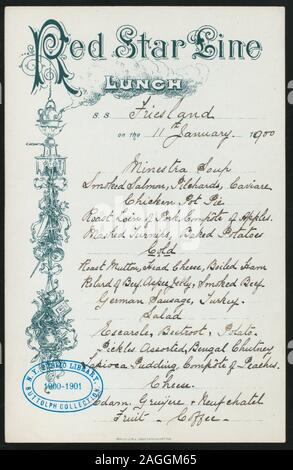 Red Star Line
LUNCH
S.S. Friesland
on the 11th January 1900
Minestra Soup
Smoked Salmon, Pilchards, Caviare
Chicken Pot Pie
Roast Loin of Pork Compôte of Apples.
Mashed Turnips, Baked Potatoes
Cold
Roast Mutton, Head Cheese, Boiled Ham
of Beef, Aspec Jelly, Smoked Beef
German Sausage, Turkey.
Salad
Escarole, Beetroot, Potato.
Pickles Assorted, Bengal Chutney
Tapioca Pudding, Compôte of Peaches.
Cheese
Edam, Gruyere & Neufchatel
Fruit - Coffee -
N.Y. PUBLIC LIBRARY
1900-1901
BUTTOLPH COLLECTION
alamy
Image ID: 2AGGM65
www.alamy.com